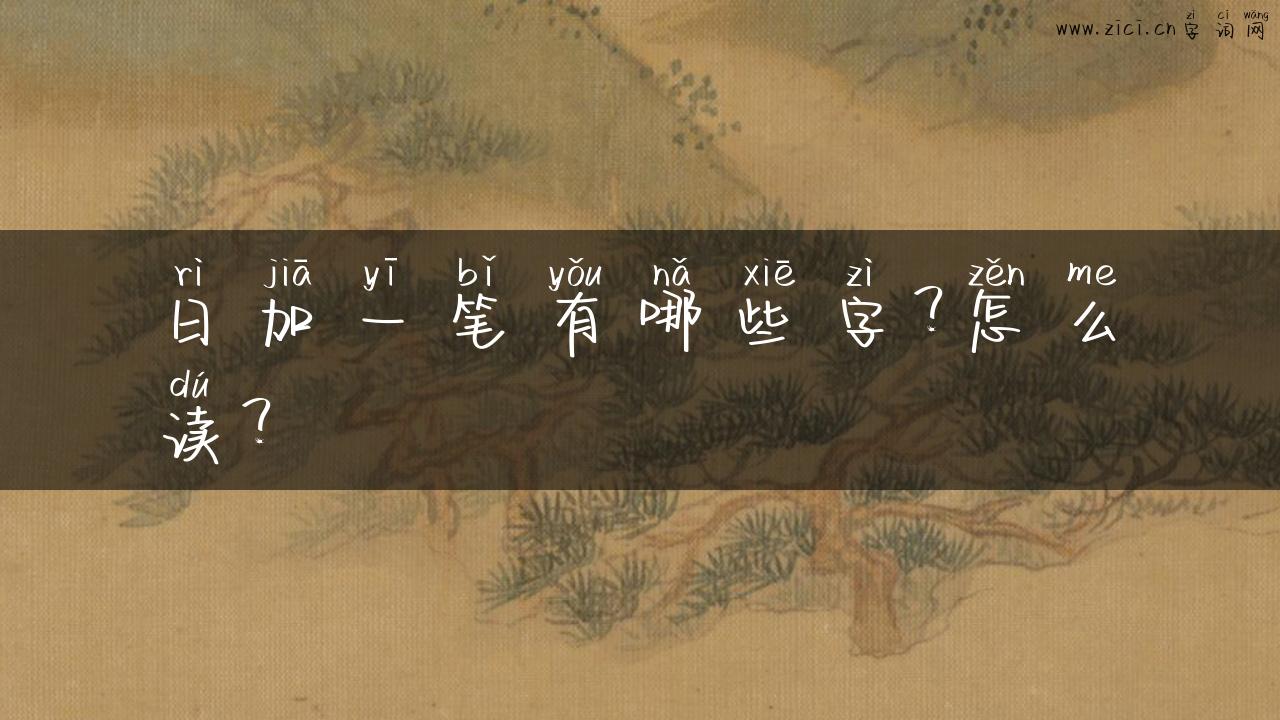 zì cí wǎng
www.zici.cn字词网
rì jiā yī bǐ yǒu nǎ xiē zì zěn me
日加一笔有哪些字?怎么
dú
读?